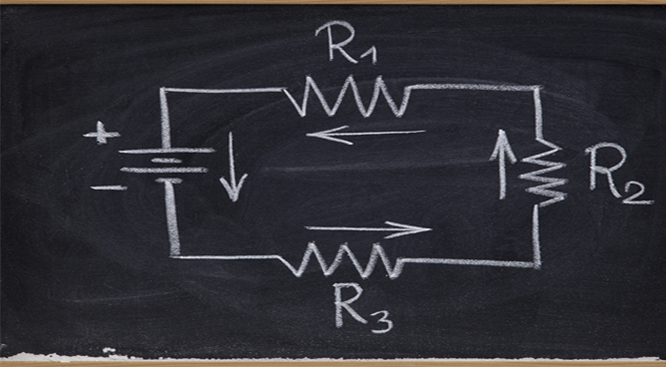 R1
+
−
R2
R3